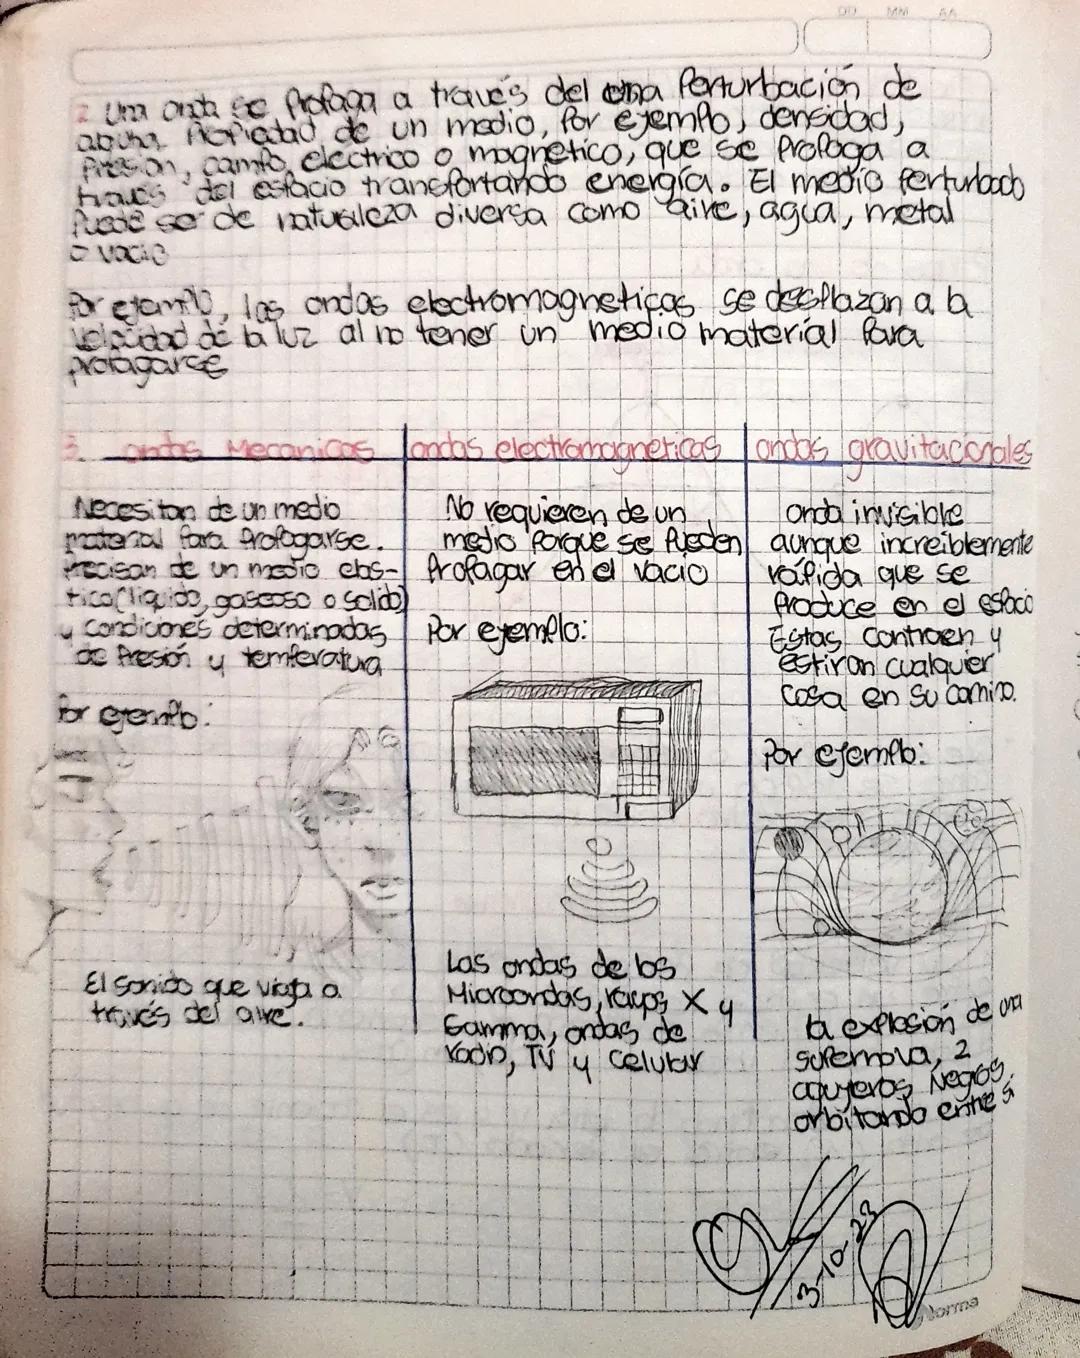 DD MM AA
2 Una onda se Propaga a través del una Perturbación de
alguna Propiedad de un medio, Por ejemplo, densidad,
Presion, campo electrico o magnetico, que se Propaga a
través del espacio transportando energía. El medio Perturbado
Puede ser de naturaleza diversa como aire, agua, metal
o vacio
Por ejemplo, las ondas electromagneticas se desplazan a la
velocidad de la luz al no tener un medio material Para
propagarse
3. ondas Mecanicas
Necesitan de un medio
material Para Propagarse.
Precisan de un medio elas-
tico (liquido, gaseoso o solido)
y condiciones determinadas
de Presión y temperatura
Por ejemplo:
El sonido que viaja a
través del aire.
ondas electromagneticas
No requieren de un
medio Porque se Pueden
Propagar en el vacio
Por ejemplo:
Las ondas de los
Microondas, rayos X y
Gamma, ondas de
radio, TV y celular
ondas gravitacionales
onda invisible
aunque increiblemente
rápida que se
Produce en el espacio
Estas contraen y
estiran cualquier
cosa en su camino.
Por ejemplo:
la explosión de una
supernova, 2
agujeros Negros
orbitando entre si
3-10-23
Norma